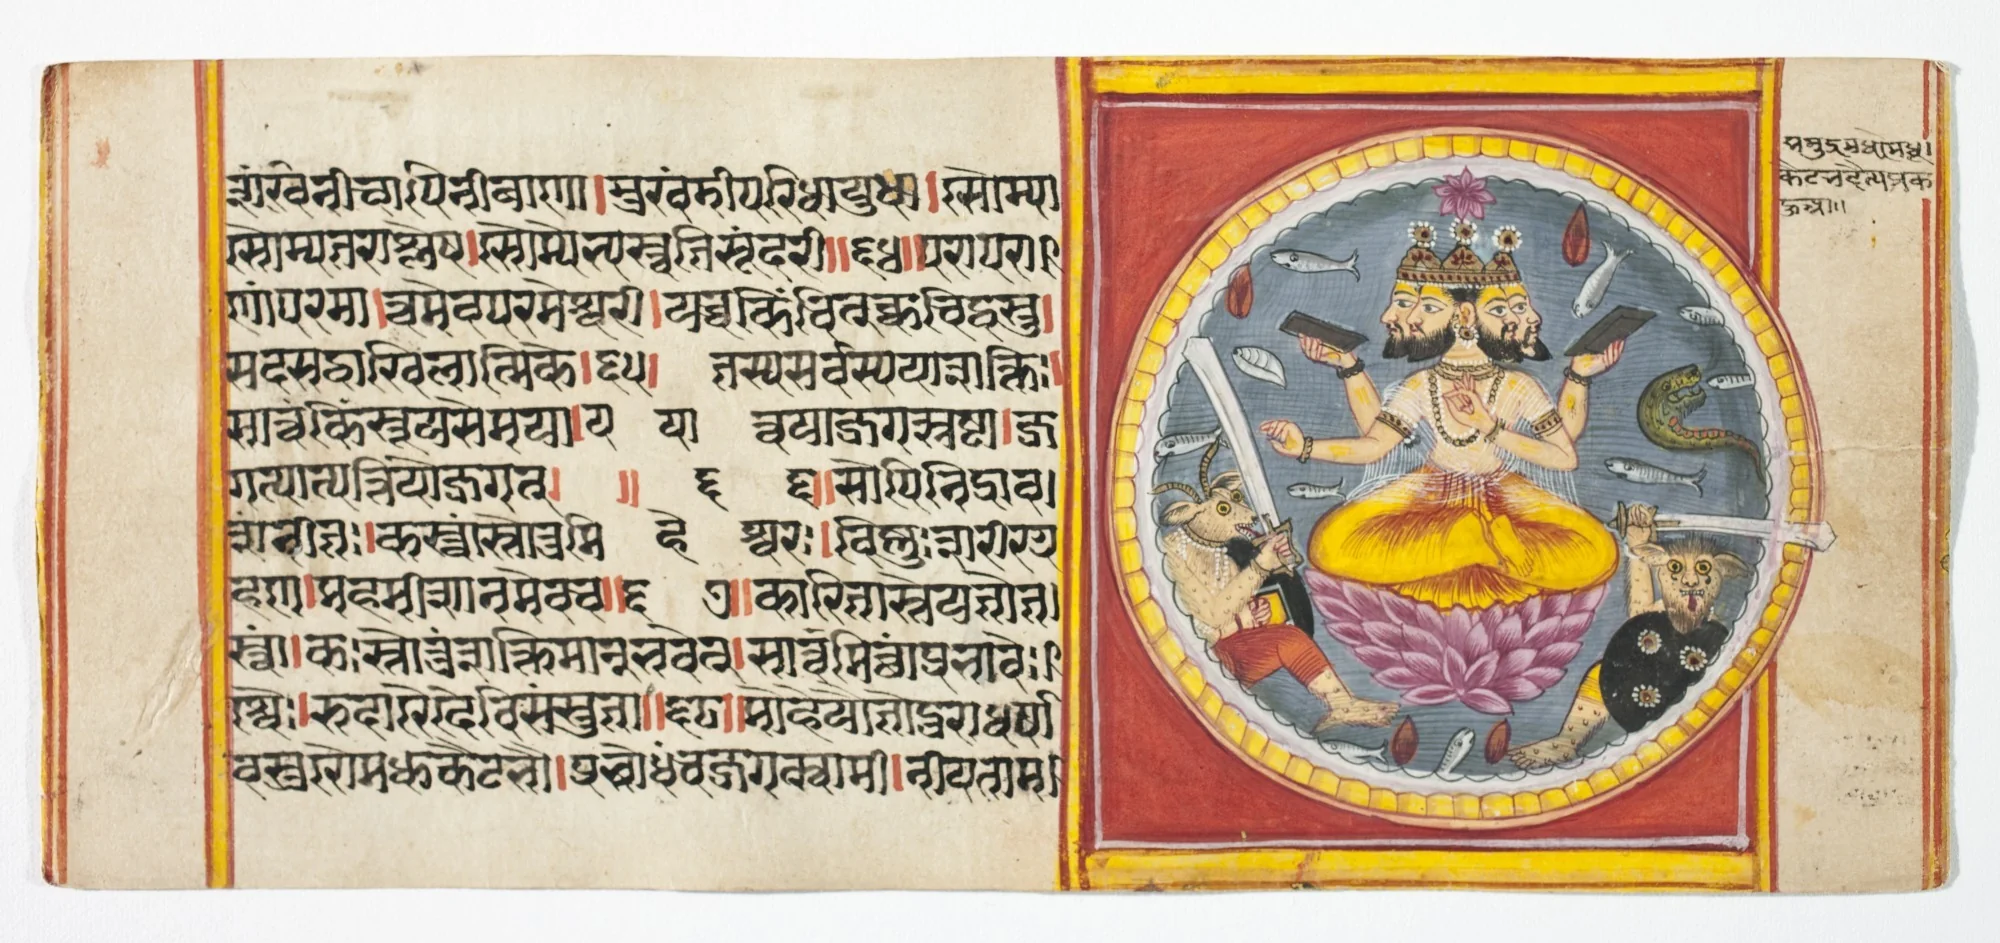 शंखिनीचापिनीबाणा।भुखंडीपरिघायुधा।सौम्या
सौम्यतराशेष।सौम्येभ्यस्त्वतिसुंदरी॥६४॥परापरा।
णांपरमा।त्वमेवपरमेश्वरी।यच्चकिंचित्क्वचिद्वस्तु।
सदसद्वाखिलात्मिके।६५। तस्यसर्वस्ययाशक्तिः।
सात्वंकिंस्तूयसेमया।य या त्वयाजगत्स्रष्टा।ज
गत्पात्यत्तियोजगत्। ॥ ६ ६॥सोपिनिद्राव।
शंनीतः।कस्त्वांस्तोतुमि हे श्वरः।विष्णुःशरीरग्र
हण।महमीशानमेवच॥६ ७॥कारितास्तेयतोत।
स्त्वां।कःस्तोतुंशक्तिमान्भवेत्।सात्वमित्थंप्रभावैः।
स्वैः।रुदारैर्देविसंस्तुता॥६८॥मोहयैतौदुराधर्षा
वसुरौमधुकैटभौ।प्रबोधंचजगत्स्वामी।नीयताम।
कैटभदैत्य